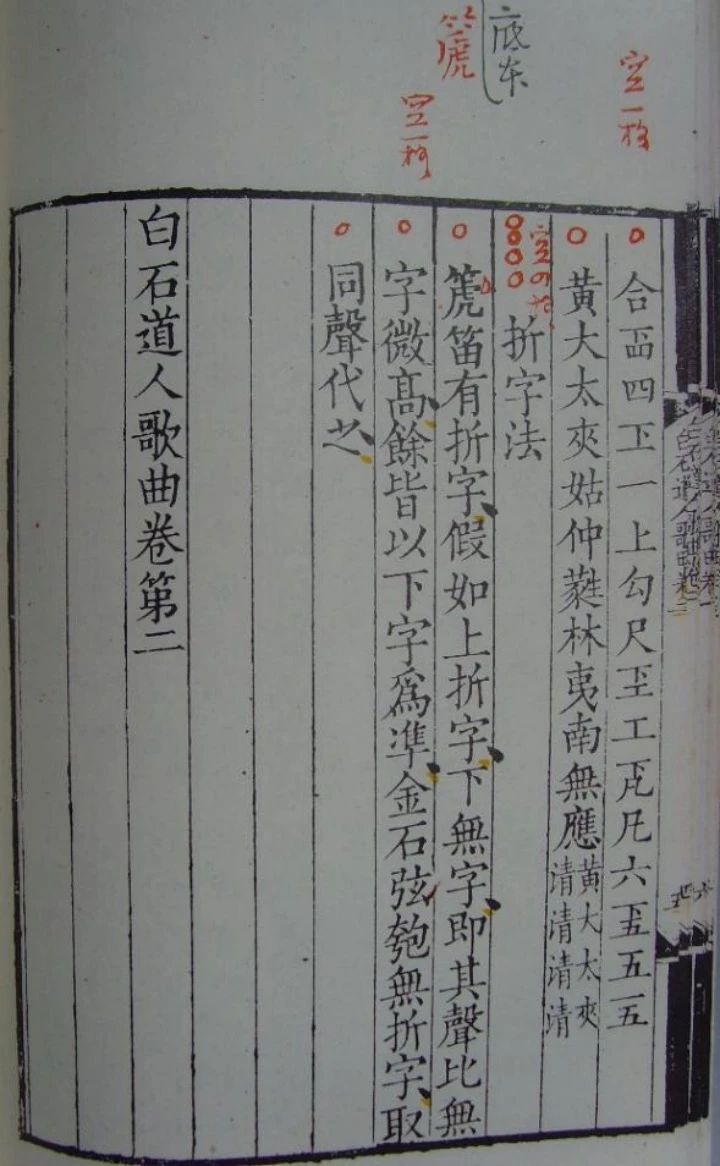 空一格
底本
箎
空一格
合𠮙四丅一上勾尺𠀋工𠂆凡六𠄡五𠄠
黄大太夾姑仲蕤林夷南無應黄清大清太清夾清
空四格
折字法
箎笛有折字假如上折字下無字即其聲比無
字微高餘皆以下字爲準金石弦匏無折字取
同聲代之
白石道人歌曲卷第二